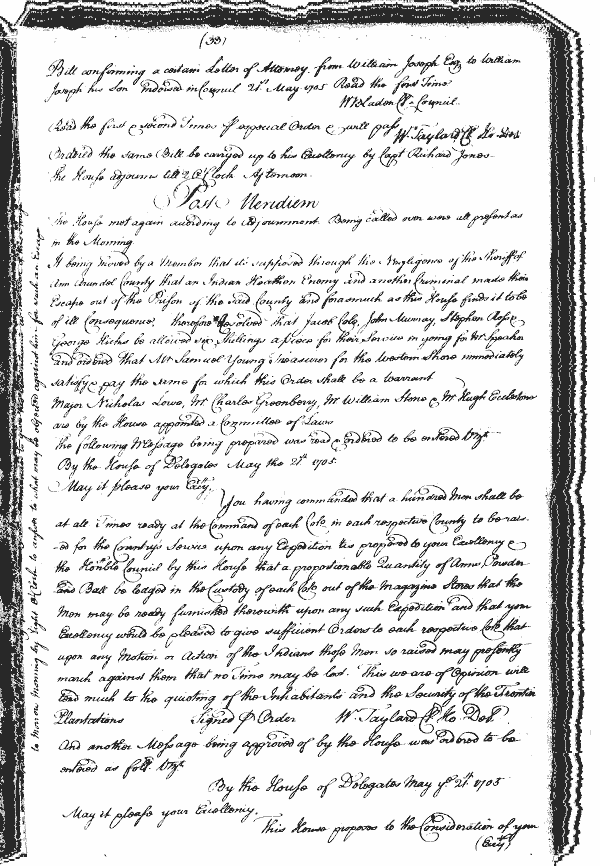 (33)
Bill confirming a certain Letter of Attorney from William Joseph Esqr to William
Joseph his Son Indorsed in Council 21st May 1705 Read the first Time.
W Bladen Cl. Council.
Read the first & second Times p especial Order & will pass W. Taylard Cl Ho Del
Ordered the same Bill be carryed up to his Excellency by Capt Richard Jones
the House adjourns till 2 o'Clock Afternoon.
Post Meridiem
The House met again according to Adjournment. Being called over were all present as
in the Morning
It being moved by a Member that its supposed through the Negligence of the Sheriff of
Ann Arundel County that an Indian Heathen Enemy and another Criminal made their
Escape out of the Prison of the said County and forasmuch as this House finds it to be
of ill Consequence, therefore Resolved that Jacob Cole, John Murray, Stephen Rose &
George Hicks be allowed six Shillings a piece for their Service in going for Mr Speaker
and ordered that Mr Samuel Young Treasurer for the Western Shore immediately
satisfy & pay the same for which this Order shall be a warrant
Major Nicholas Lowe, Mr Charles Greenberry, Mr William Stone & Mr Hugh Eccleston
are by the House appointed a Committee of Laws
the following Message being prepared was read & ordered to be entered Vizt
By the House of Delegates May the 21st 1705.
May it please your Excy.
You having commanded that a hundred Men shall be
at all Times ready at the Command of each Colo in each respective County to be rais-
-ed for the Countrys Service upon any Expedition tis proposed to your Excellency &
the Honble Council by this House that a proportionable Quantity of Arms Powder
and Ball be lodged in the Custody of each Colo out of the Magazine Stores that the
Men may be ready furnished therewith upon any such Expedition and that your
Excellency would be pleased to give sufficient Orders to each respective Colo that
upon any Motion or Action of the Indians those Men so raised may presently
march against them that no Time may be lost. This we are of Opinion will
tend much to the quieting of the Inhabitants and the Security of the Frontier
Plantations Signed p Order W. Taylard Cl Ho. Del.
And another Message being approved of by the House was ordered to be
entered as foll. Vizt
By the House of Delegates May ye 21st 1705
May it please your Excellency,
This House proposes to the Consideration of your
(Excy)
to morrow Morning by Eight o'Clock to answer to what may be objected against him for such an Escape